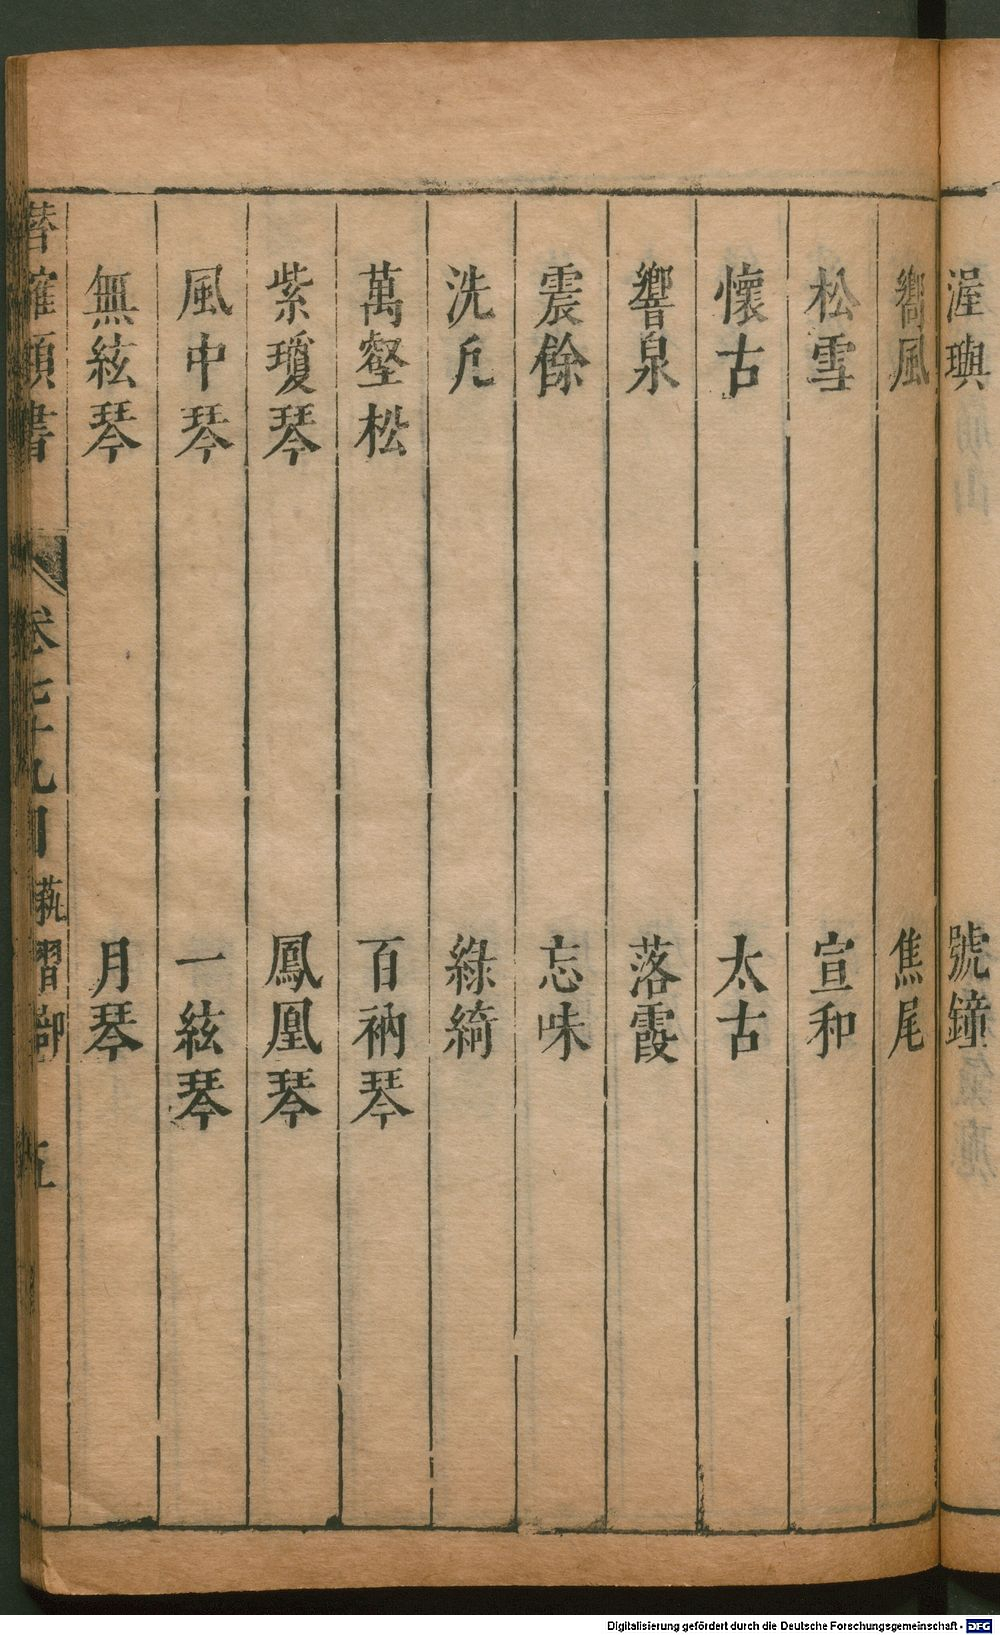 渥璵
號鐘
嚮風
焦尾
松雪
宣和
懷古
太古
響泉
落霞
震餘
忘味
洗凡
綠綺
萬壑松
百衲琴
紫瓊琴
鳳凰琴
風中琴
一絃琴
無絃琴
月琴
類書
卷七十九目
五
Digitalisierung gefördert durch die Deutsche Forschungsgemeinschaft - DFG